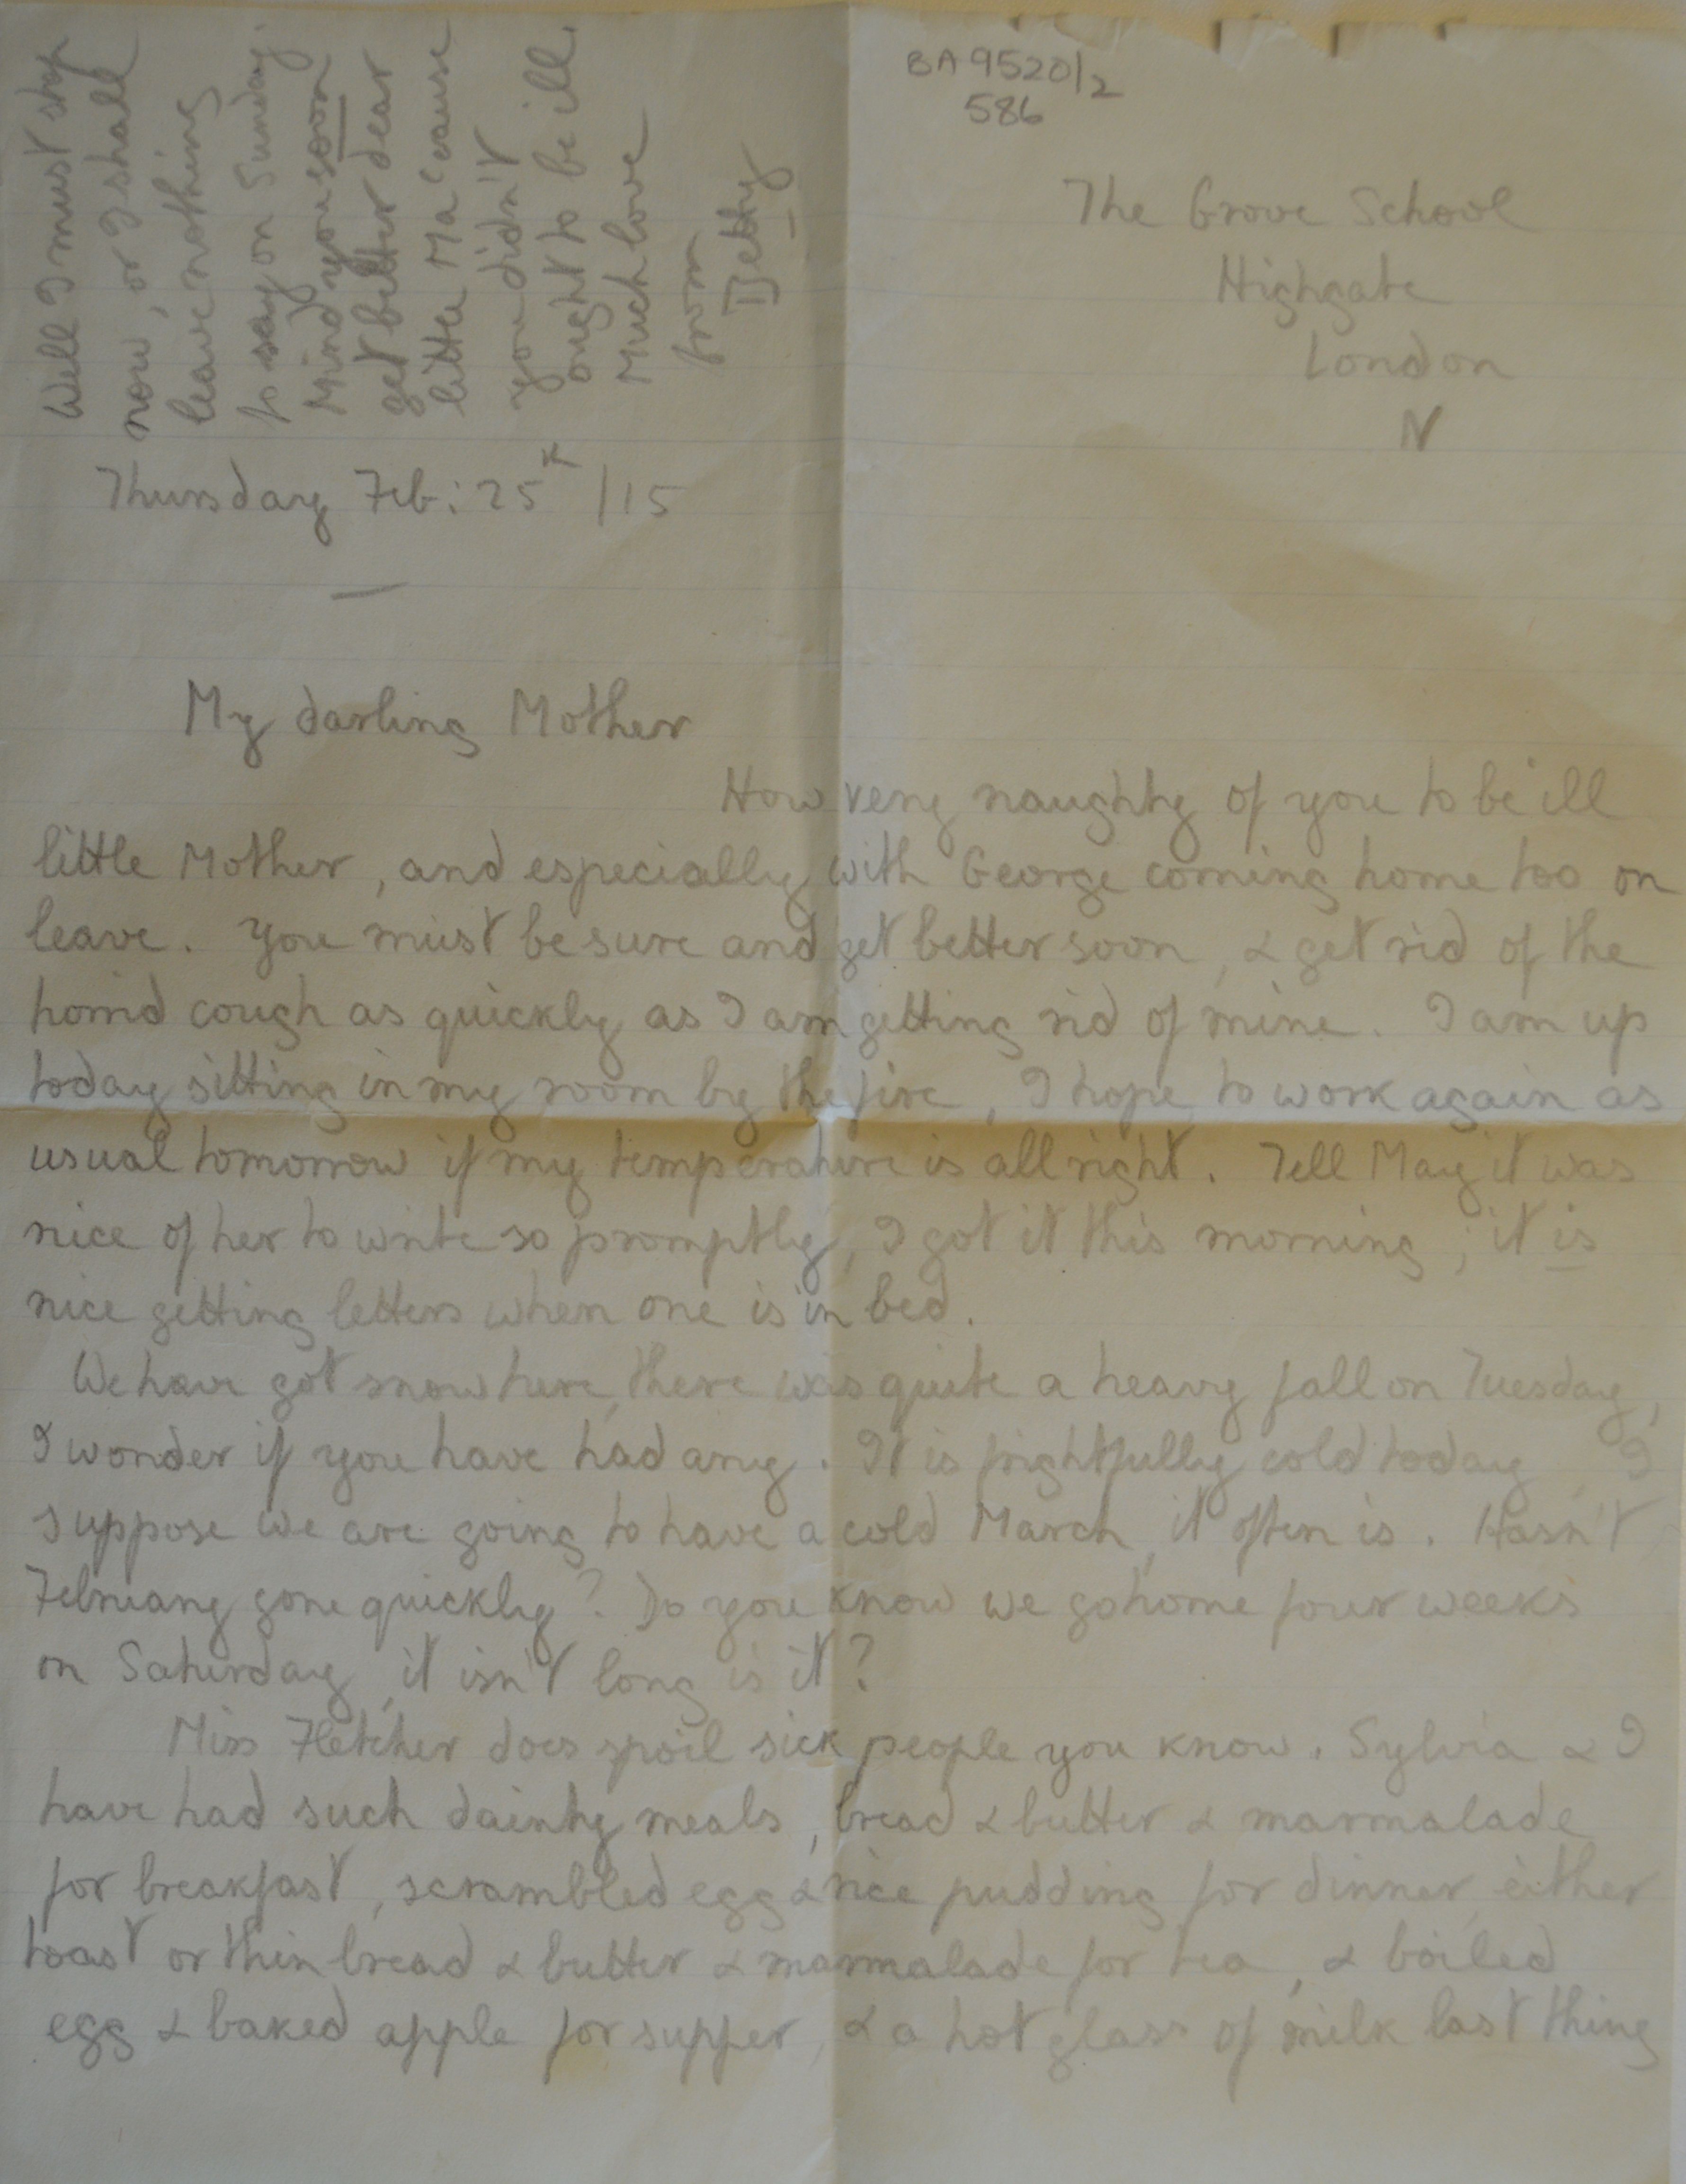 BA 9520/2
586
The Grove School
Highgate
London
N
Thursday Feb: 25th /15
My darling Mother
How very naughty of you to be ill
little Mother, and especially with George coming home too on
leave. You must be sure and get better soon, & get rid of the
horrid cough as quickly as I am getting rid of mine. I am up
today sitting in my room by the fire, I hope to work again as
usual tomorrow if my temperature is all right. Tell May it was
nice of her to write so promptly, I got it this morning; it is
nice getting letters when one is in bed.
We have got snow here, there was quite a heavy fall on Tuesday,
I wonder if you have had any. It is frightfully cold today, I
suppose we are going to have a cold March, it often is. Hasn't
February gone quickly? Do you know we go home four weeks
on Saturday, it isn't long is it?
Miss Fletcher does spoil sick people you know. Sylvia & I
have had such dainty meals, bread & butter & marmalade
for breakfast, scrambled egg & rice pudding for dinner, either
toast or thin bread & butter & marmalade for tea, & boiled
egg & baked apple for supper, & a hot glass of milk last thing
Well I must stop
now, or I shall
leave nothing
to say on Sunday.
Mind you soon
get better dear
little Ma 'cause
you didn't
ought to be ill.
Much love
from
Betty